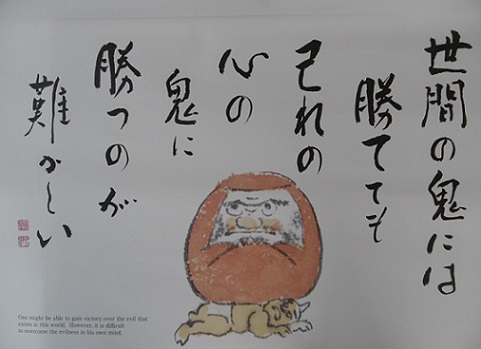 世間の鬼には
勝てても
己れの
心の
鬼に
勝つのが
難かしい
One might be able to gain victory over the evil that
exists in this world. However, it is difficult
to overcome the evilness in his own mind.